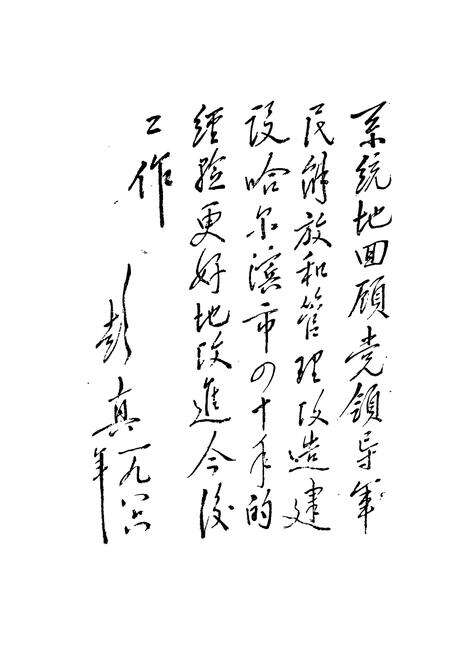 系统地回顾党领导军
民解放和管理改造建
设哈尔滨市四十年的
经验更好地改進今後
工作
彭真一九八六
年